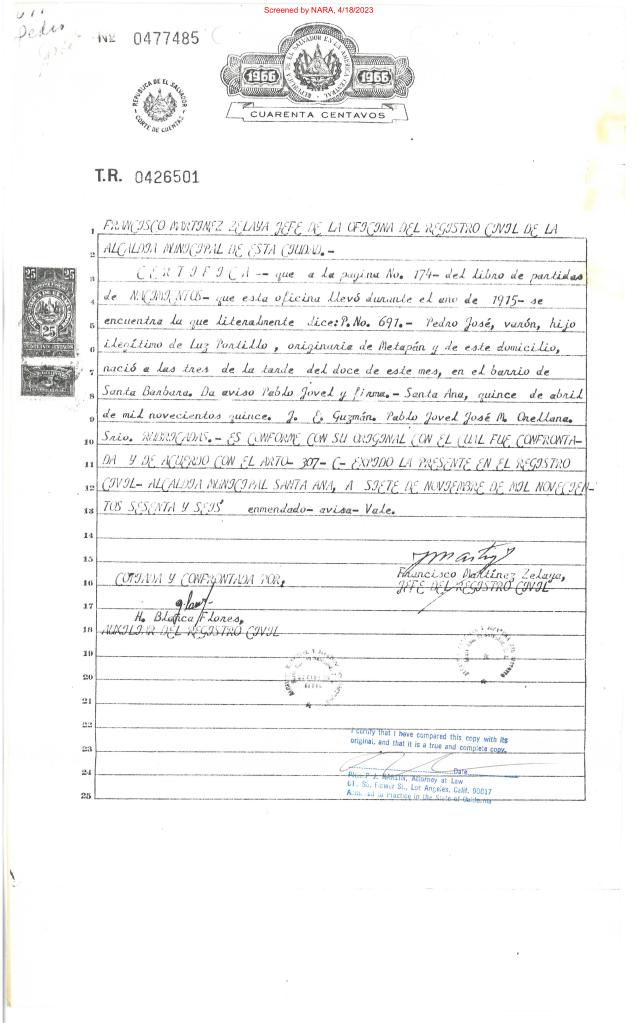 Screened by NARA, 4/18/2023
Pedro
José
Nº 0477485
REPUBLICA DE EL SALVADOR
CORTE DE CUENTAS
REPUBLICA DE EL SALVADOR EN LA AMERICA CENTRAL
1966 1966
CUARENTA CENTAVOS
T.R. 0426501
1 FRANCISCO MARTINEZ ZELAYA JEFE DE LA OFICINA DEL REGISTRO CIVIL DE LA
2 ALCALDIA MUNICIPAL DE ESTA CIUDAD.-
3 C E R T I F I C A -- que a la pagina No. 174- del libro de partidas
4 de NACIMIENTOS- que esta oficina llevó durante el ano de 1915- se
5 encuentra la que literalmente dice: P.No. 691.- Pedro José, varón, hijo
6 ilegítimo de Luz Portillo, originaria de Metapán y de este domicilio,
7 nació a las tres de la tarde del doce de este mes, en el barrio de
8 Santa Barbara. Da aviso Pablo Jovel y firma.- Santa Ana, quince de abril
9 de mil novecientos quince. J. E. Guzmán. Pablo Jovel José M. Orellana.
10 Srio. RUBRICADAS.- ES CONFORME CON SU ORIGINAL CON EL CUAL FUE CONFRONTA-
11 DA Y DE ACUERDO CON EL ARTO- 307-C- EXPIDO LA PRESENTE EN EL REGISTRO
12 CIVIL- ALCALDIA MUNICIPAL SANTA ANA, A SIETE DE NOVIEMBRE DE MIL NOVECIEN-
13 TOS SESENTA Y SEIS enmendado- avisa- Vale.
14
15
Francisco Martínez Zelaya,
16 COTIJADA Y CONFRONTADA POR, JEFE DEL REGISTRO CIVIL
17
H. Blanca Flores,
18 AUXILIAR DEL REGISTRO CIVIL
19
20
21
22
I certify that I have compared this copy with its
23 original, and that it is a true and complete copy.
24 Date
Attorney at Law
Flower St., Los Angeles, Calif. 90017
25 to Practice in the State of California
25 25
25